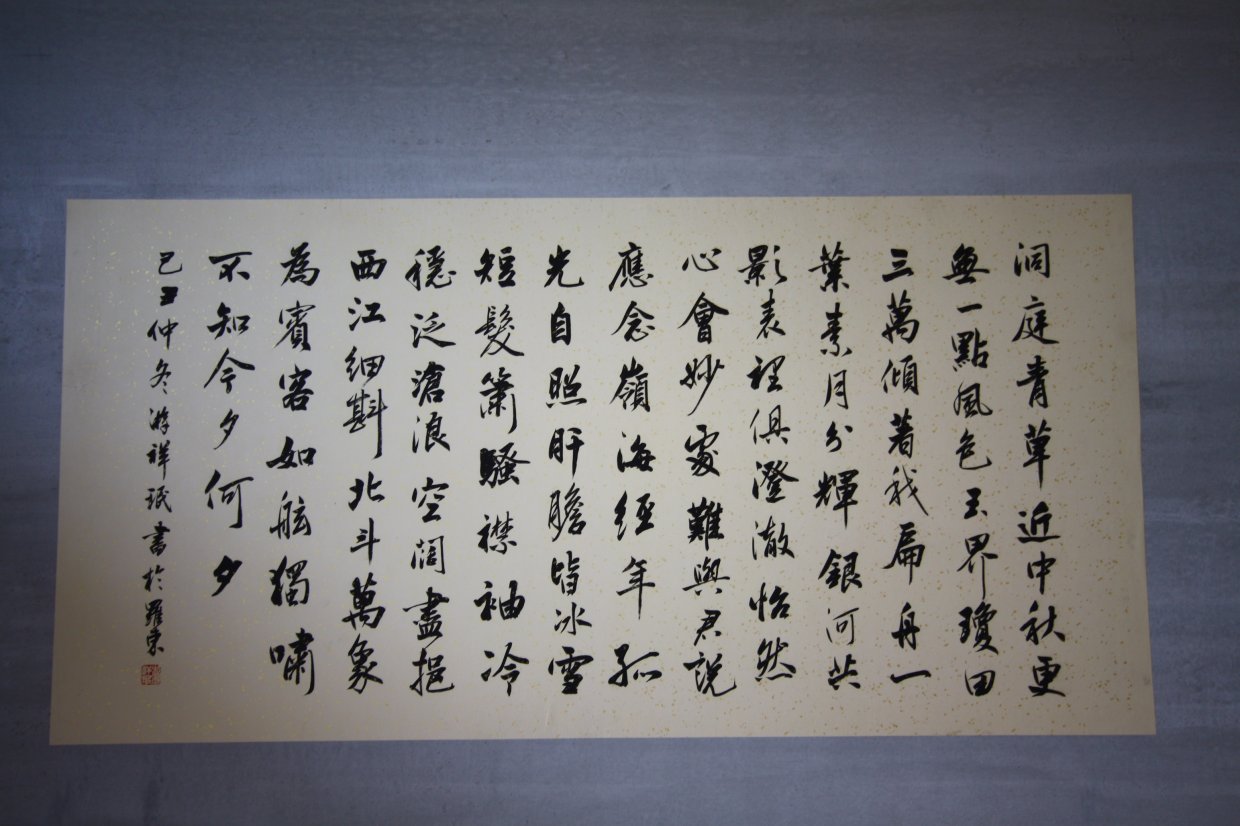 洞庭青草近中秋更
無一點風色玉界瓊田
三萬傾著我扁舟一
葉素月分輝銀河共
影表裡俱澄澈怡然
心會妙處難與君說
應念嶺海經年孤
光自照肝膽皆冰雪
短髮簫騷襟袖冷
穩泛滄浪空闊盡挹
西江細斟北斗萬象
為賓客如舷獨嘯
不知今夕何夕
己丑仲冬游祥珉書於羅東